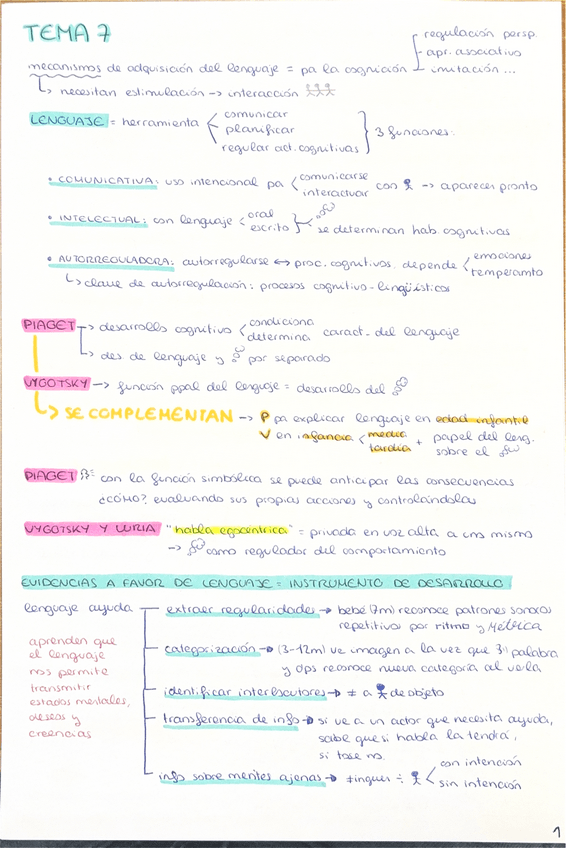 TEMA 7
regulación persp.
apr. asociativo
mecanismos de adquisición del lenguaje = pa la cognición imitación ...
↳ necesitan estimulación → interacción
comunicar
LENGUAJE = herramienta planificar 3 funciones:
regular act. cognitivas
• COMUNICATIVA: uso intencional pa comunicarse con → aparece pronto
interactuar
• INTELECTUAL: con lenguaje oral
escrito se determinan hab. cognitivas
• AUTORREGULADORA: autorregularse ↔ proc. cognitivos. depende emociones
temperamto
↳ clave de autorregulación: procesos cognitivo-lingüísticos
PIAGET → desarrollo cognitivo condiciona caract. del lenguaje
determina
↳ des. de lenguaje y por separado
VYGOTSKY → función ppal del lenguaje = desarrollo del
↳ SE COMPLEMENTAN → P pa explicar lenguaje en edad infantil
V en infancia media + papel del leng.
tardía sobre el
PIAGET = con la función simbólica se puede anticipar las consecuencias
¿CÓMO? evaluando sus propias acciones y controlándolas
VYGOTSKY Y LURIA "habla egocéntrica" = privada en voz alta a uno mismo
→ como regulador del comportamiento
EVIDENCIAS A FAVOR DE LENGUAJE = INSTRUMENTO DE DESARROLLO
lenguaje ayuda extraer regularidades → bebé (7m) reconoce patrones sonoros
repetitivos por ritmo y métrica
aprenden que
el lenguaje
nos permite
transmitir
estados mentales,
deseos y
creencias
categorización → (3-12m) ve imagen a la vez que palabra
y dps reconoce nueva categoría al verla
identificar interlocutores → ≠ a de objeto
transferencia de info → si ve a un actor que necesita ayuda,
sabe que si habla la tendrá,
si tose no.
info sobre mentes ajenas → ≠inguen ÷ con intención
sin intención
1